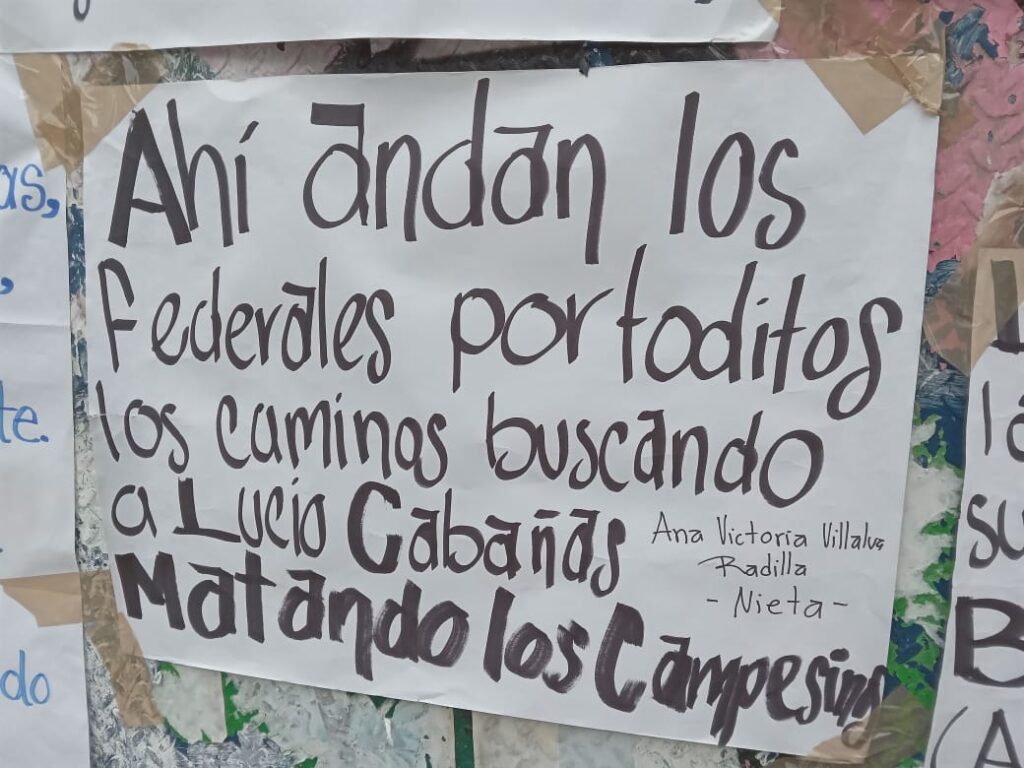 Ahí andan los
federales por toditos
los caminos buscando
a Lucio Cabañas
Matando los Campesinos
Ana Victoria Villalva
Radilla
- Nieta -
as,
,
te.
do
la
su
B
(A